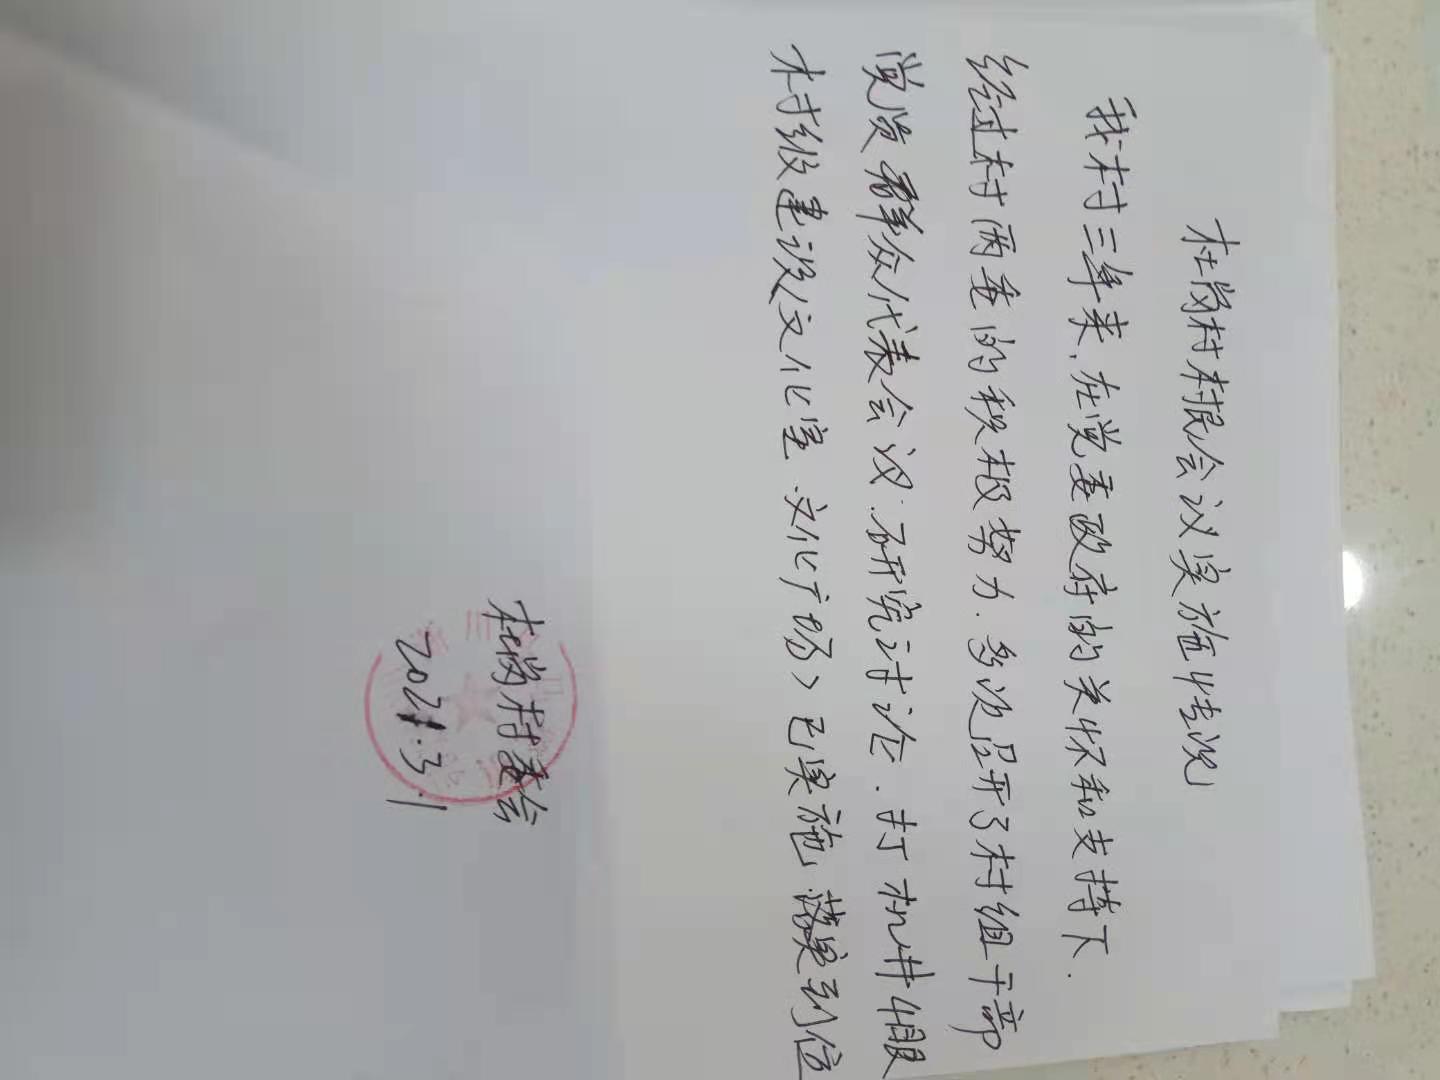 杜岗村村民会议实施情况
我村三年来,在党委政府的关怀和支持下.
经过村两委的积极努力.多次召开了村组干部
党员群众代表会议.研究讨论.打机井4眼
村级建设(文化室.文化广场)已实施.落实到位
杜岗村委会
2021.3.1